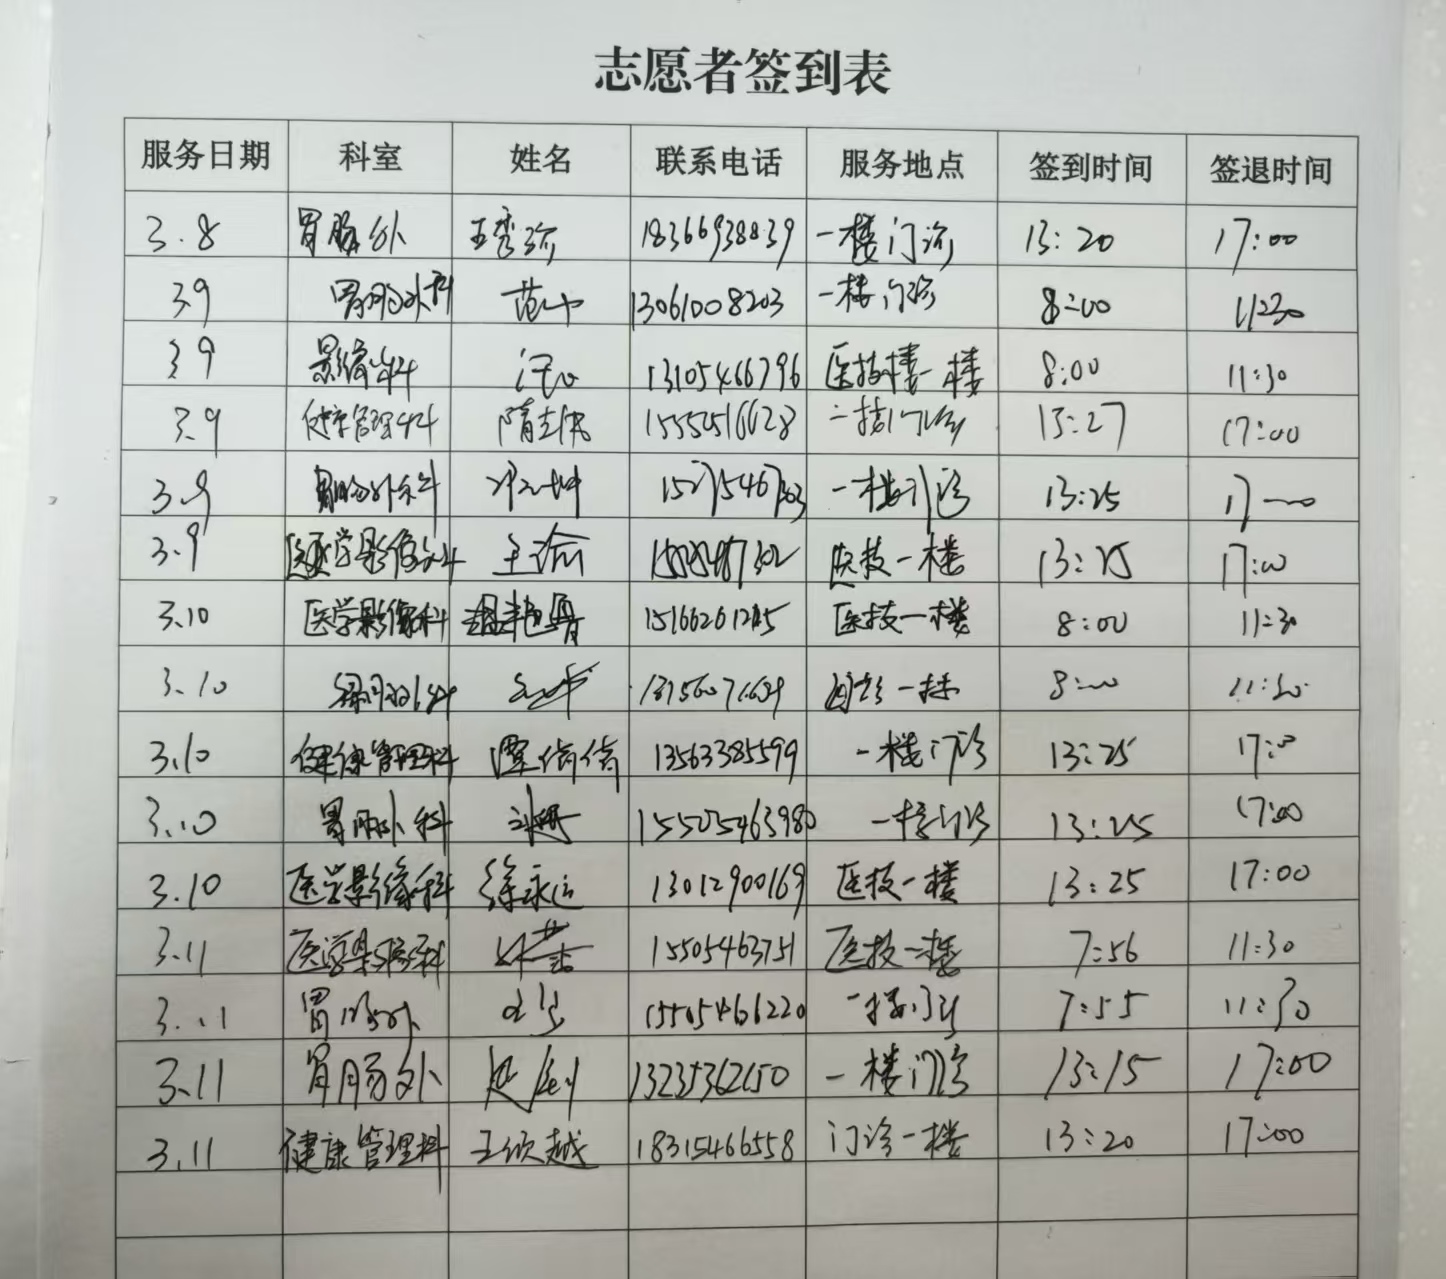 志愿者签到表
服务日期 科室 姓名 联系电话 服务地点 签到时间 签退时间
3.8 胃肠外 王秀珍 18366938839 一楼门诊 13:20 17:00
3.9 胃肠外科 13061008203 一楼门诊 8:00 11:30
3.9 影像科 13105466796 医技楼一楼 8:00 11:30
3.9 健康管理科 隋志伟 13:27 17:00
3.9 胃肠外科 一楼门诊 13:25 17:00
3.9 医学影像科 王谕 医技一楼 13:25 17:00
3.10 医学影像科 医技一楼 8:00 11:30
3.10 8:00 11:30
3.10 健康管理科 谭倩倩 13563385599 一楼门诊 13:25 17:00
3.10 胃肠外科 155505463980 一楼门诊 13:25 17:00
3.10 医学影像科 徐永远 13012900169 医技一楼 13:25 17:00
3.11 医学影像科 15505463751 医技一楼 7:56 11:30
3.11 胃肠外 15505466220 一楼门诊 7:55 11:30
3.11 胃肠外 13235362150 一楼门诊 13:15 17:00
3.11 健康管理科 王欣越 18315466558 门诊一楼 13:20 17:00